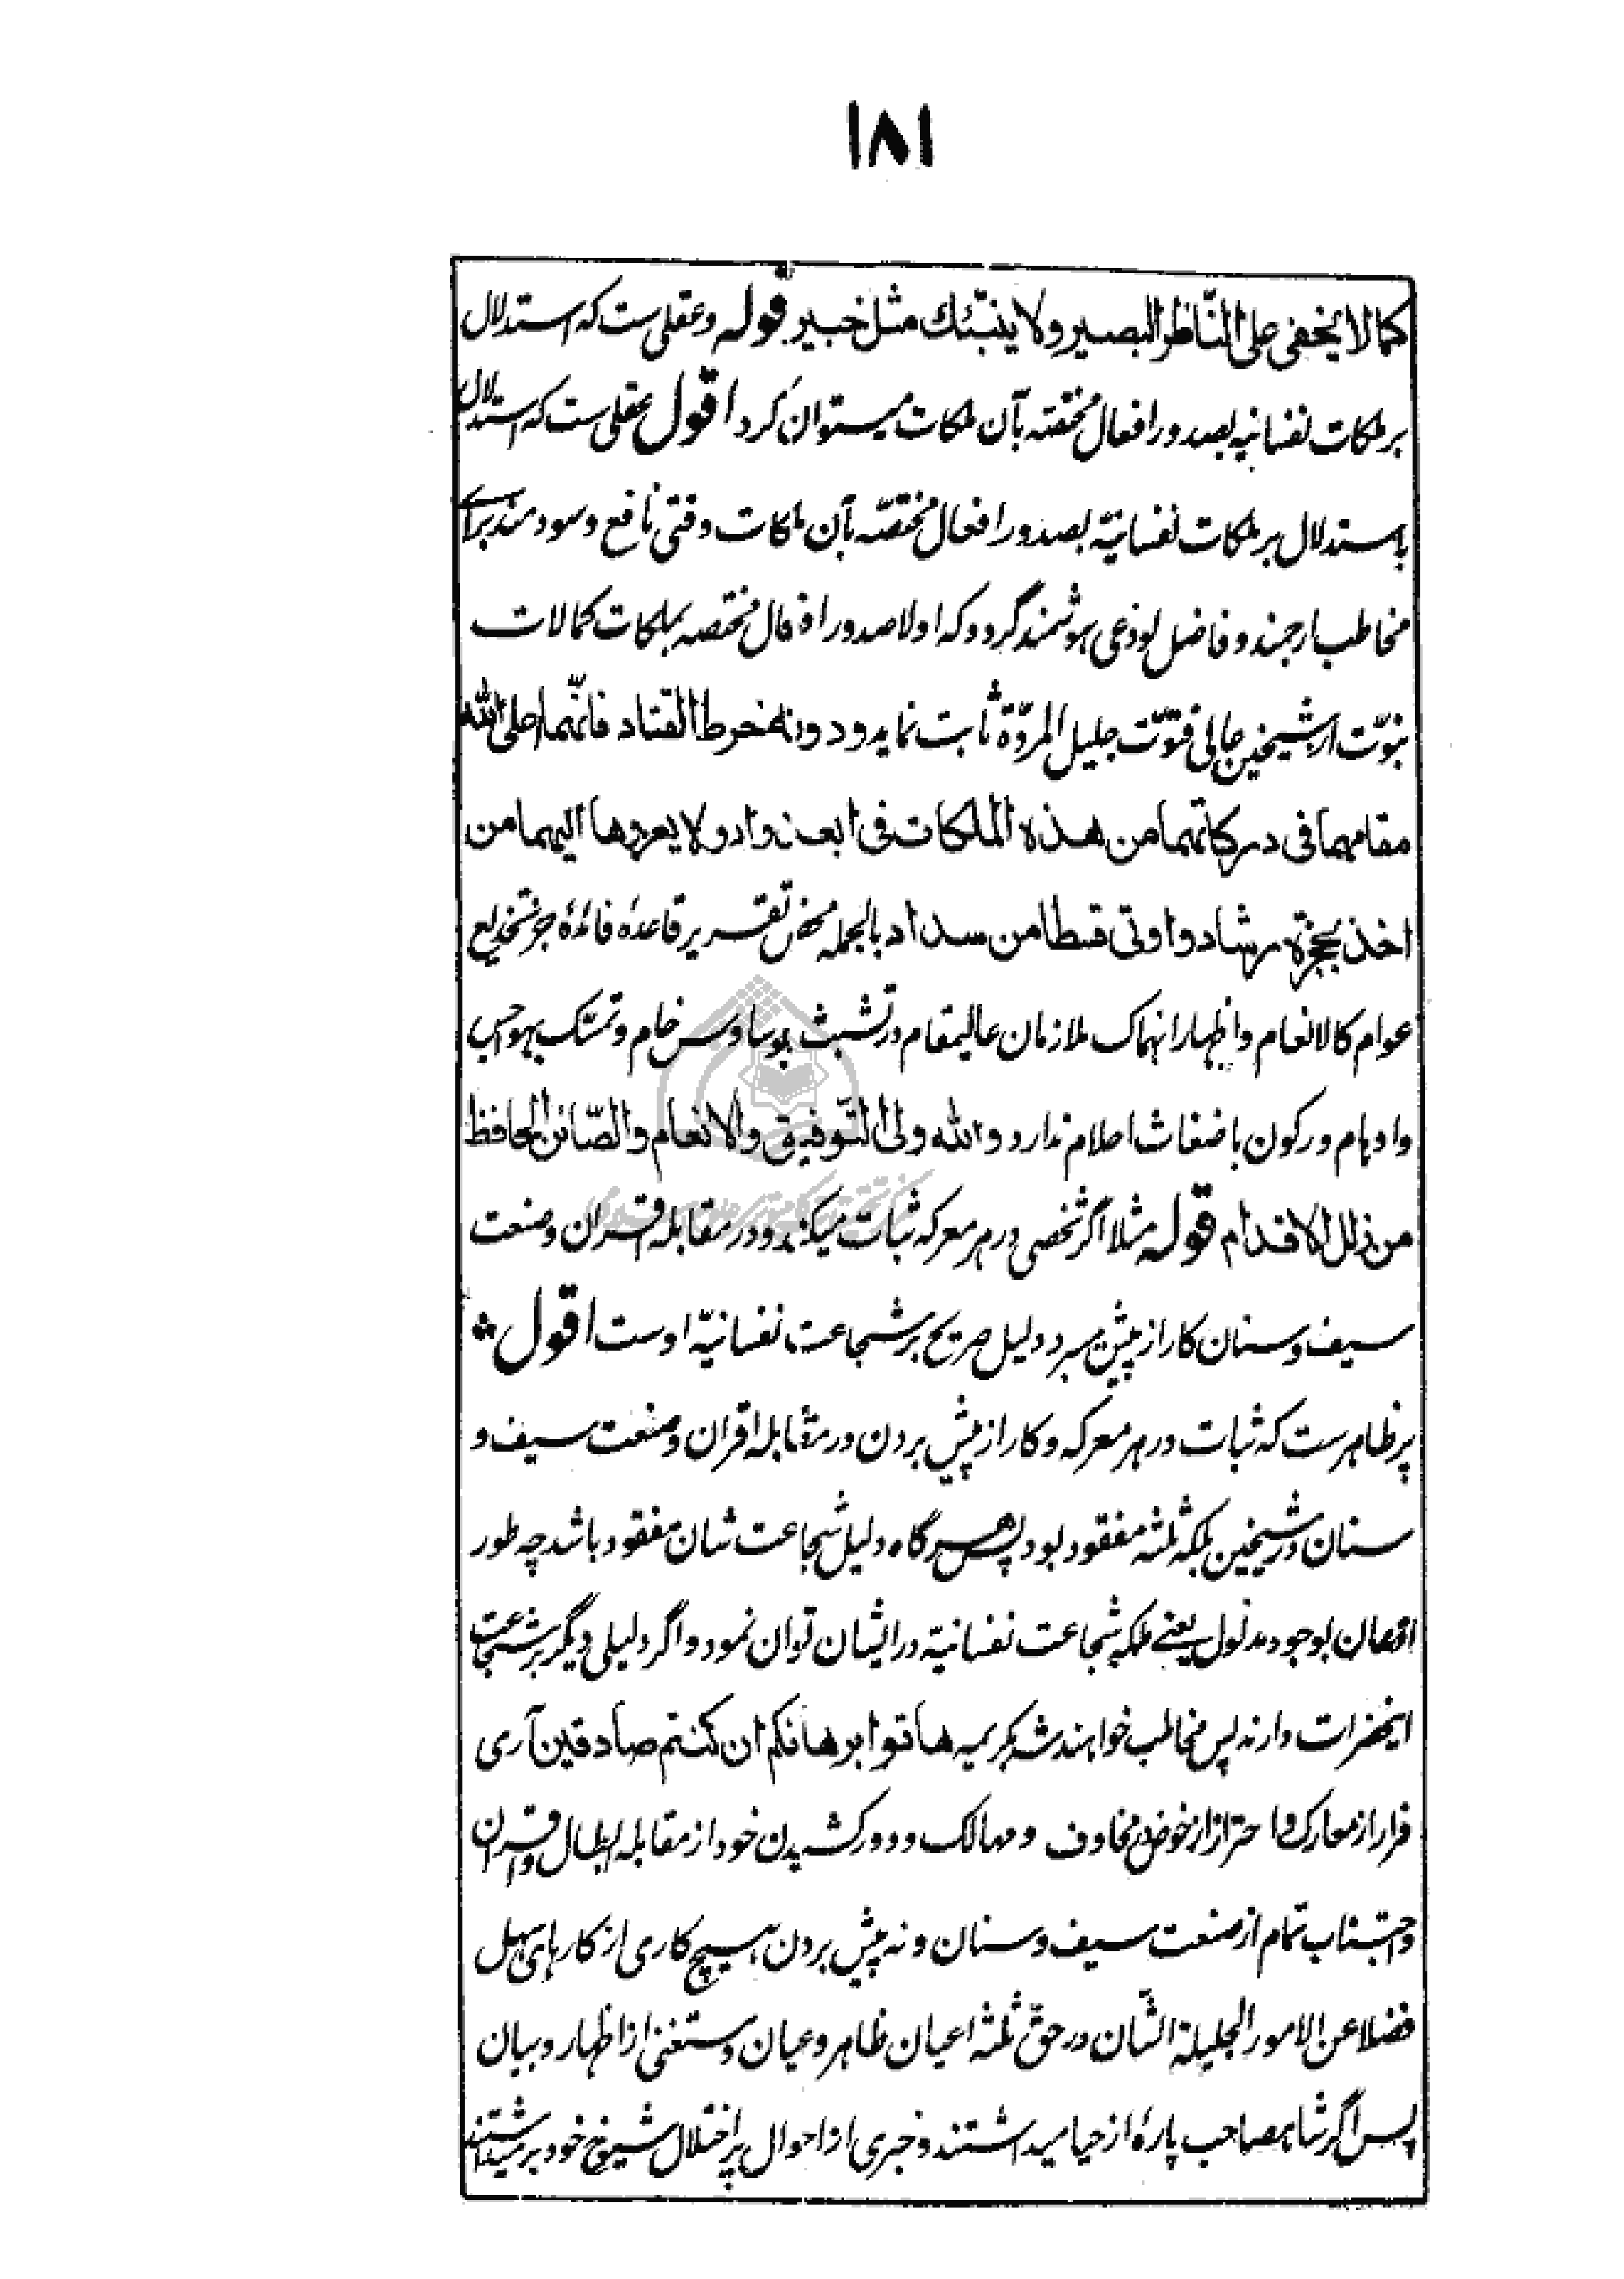 ۱۸۱
كما لا يخفى على النّاظر البصير ولا ينبّئك مثل خبير قوله وعقلی ست که استدلال
بر ملکات نفسانیه بصدور افعال مختصه بآن ملکات میتوان کرد اقول عقلی ست که استدلال
باستدلال بر ملکات نفسانیّه بصدور افعال مختصّه بآن ملکات وقتی نافع و سودمند برای
مخاطب ارجمند و فاضل لوذعی هوشمند گردد که اولا صدور افعال مختصه بملکات کمالات
نبوّت از شیخین عالی فتوّت جلیل المروّة ثابت نماید و دونه خرط القتاد فانّهما احلى الله
مقامهما فى دركاتهما من هذه الملكات فى ابعد واد ولا يعزوها اليهما من
اخذ بحجزة رشاد واوتى قسطا من سداد بالجمله محض تقریر قاعدهٔ فائدهٔ جز تخدیع
عوام کالانعام و اظهار انهماک ملازمان عالیمقام در تشبث بوساوس خام و تمسّک بهواجس
و اوهام و رکون باضغاث احلام ندارد والله ولى التّوفيق والانعام والصّائن الحافظ
من زلل الاقدام قوله مثلا اگر شخصی در هر معرکه ثبات میکند و در مقابله اقران و صنعت
سیف و سنان کار از پیش میبرد دلیل صریح بر شجاعت نفسانیّه اوست اقول
پر ظاهرست که ثبات در هر معرکه و کار از پیش بردن در مقابله اقران و صنعت سیف و
سنان در شیخین بلکه ثلثه مفقود بود پس هرگاه دلیل شجاعت شان مفقود باشد چه طور
اذعان بوجود مدلول یعنے ملکه شجاعت نفسانیّة در ایشان توان نمود و اگر دلیلی دیگر بر شجاعت
اینحضرات دارند پس مخاطب خواهند شد بکریمه هاتوا برهانكم ان كنتم صادقين آری
فرار از معارک و احتراز از خوض در مخاوف و مهالک و دور کشیدن خود از مقابله ابطال و اقران
و اجتناب تمام از صنعت سیف و سنان و نه پیش بردن هیچ کاری از کارهای سهل
فضلا عن الامور الجليلة الشّان در حقّ ثلثه اعیان ظاهر و عیان و مستغنی از اظهار و بیان
پس اگر شاهصاحب پارهٔ از حیا میداشتند و خبری از احوال پر اختلال شیوخ خود بر میداشتند